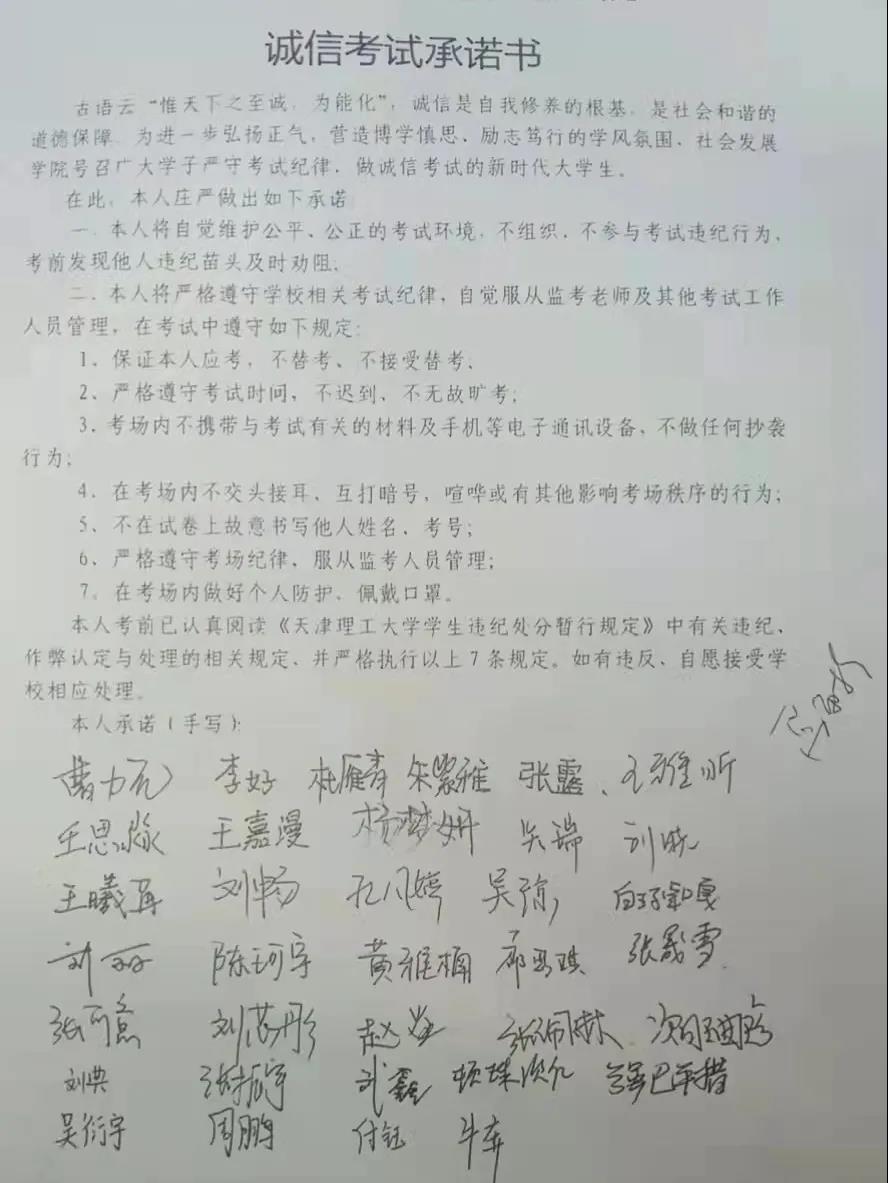 诚信考试承诺书
古语云“惟天下之至诚，为能化”，诚信是自我修养的根基，是社会和谐的
道德保障。为进一步弘扬正气，营造博学慎思、励志笃行的学风氛围，社会发展
学院号召广大学子严守考试纪律，做诚信考试的新时代大学生。
在此，本人庄严做出如下承诺：
一、本人将自觉维护公平、公正的考试环境，不组织、不参与考试违纪行为，
考前发现他人违纪苗头及时劝阻；
二、本人将严格遵守学校相关考试纪律，自觉服从监考老师及其他考试工作
人员管理，在考试中遵守如下规定：
1、保证本人应考，不替考、不接受替考；
2、严格遵守考试时间，不迟到、不无故旷考；
3、考场内不携带与考试有关的材料及手机等电子通讯设备，不做任何抄袭
行为；
4、在考场内不交头接耳、互打暗号，喧哗或有其他影响考场秩序的行为；
5、不在试卷上故意书写他人姓名、考号；
6、严格遵守考场纪律，服从监考人员管理；
7、在考场内做好个人防护、佩戴口罩。
本人考前已认真阅读《天津理工大学学生违纪处分暂行规定》中有关违纪、
作弊认定与处理的相关规定、并严格执行以上7条规定。如有违反、自愿接受学
校相应处理。
本人承诺（手写）：
李好 杜雁青 朱紫雅 张露、王雅昕
王思淼 王嘉漫 杨梦妍 吴瑞 刘晓
王曦苒 刘畅 孔凡婷 吴弥
刘丽 陈珂宇 黄雅楠 张晟雪
张可意 刘芮彤 赵益 张佩琳
刘典 张振宇 武鑫 顿珠次仁
吴衍宇 周鹏 付钰 牛犇